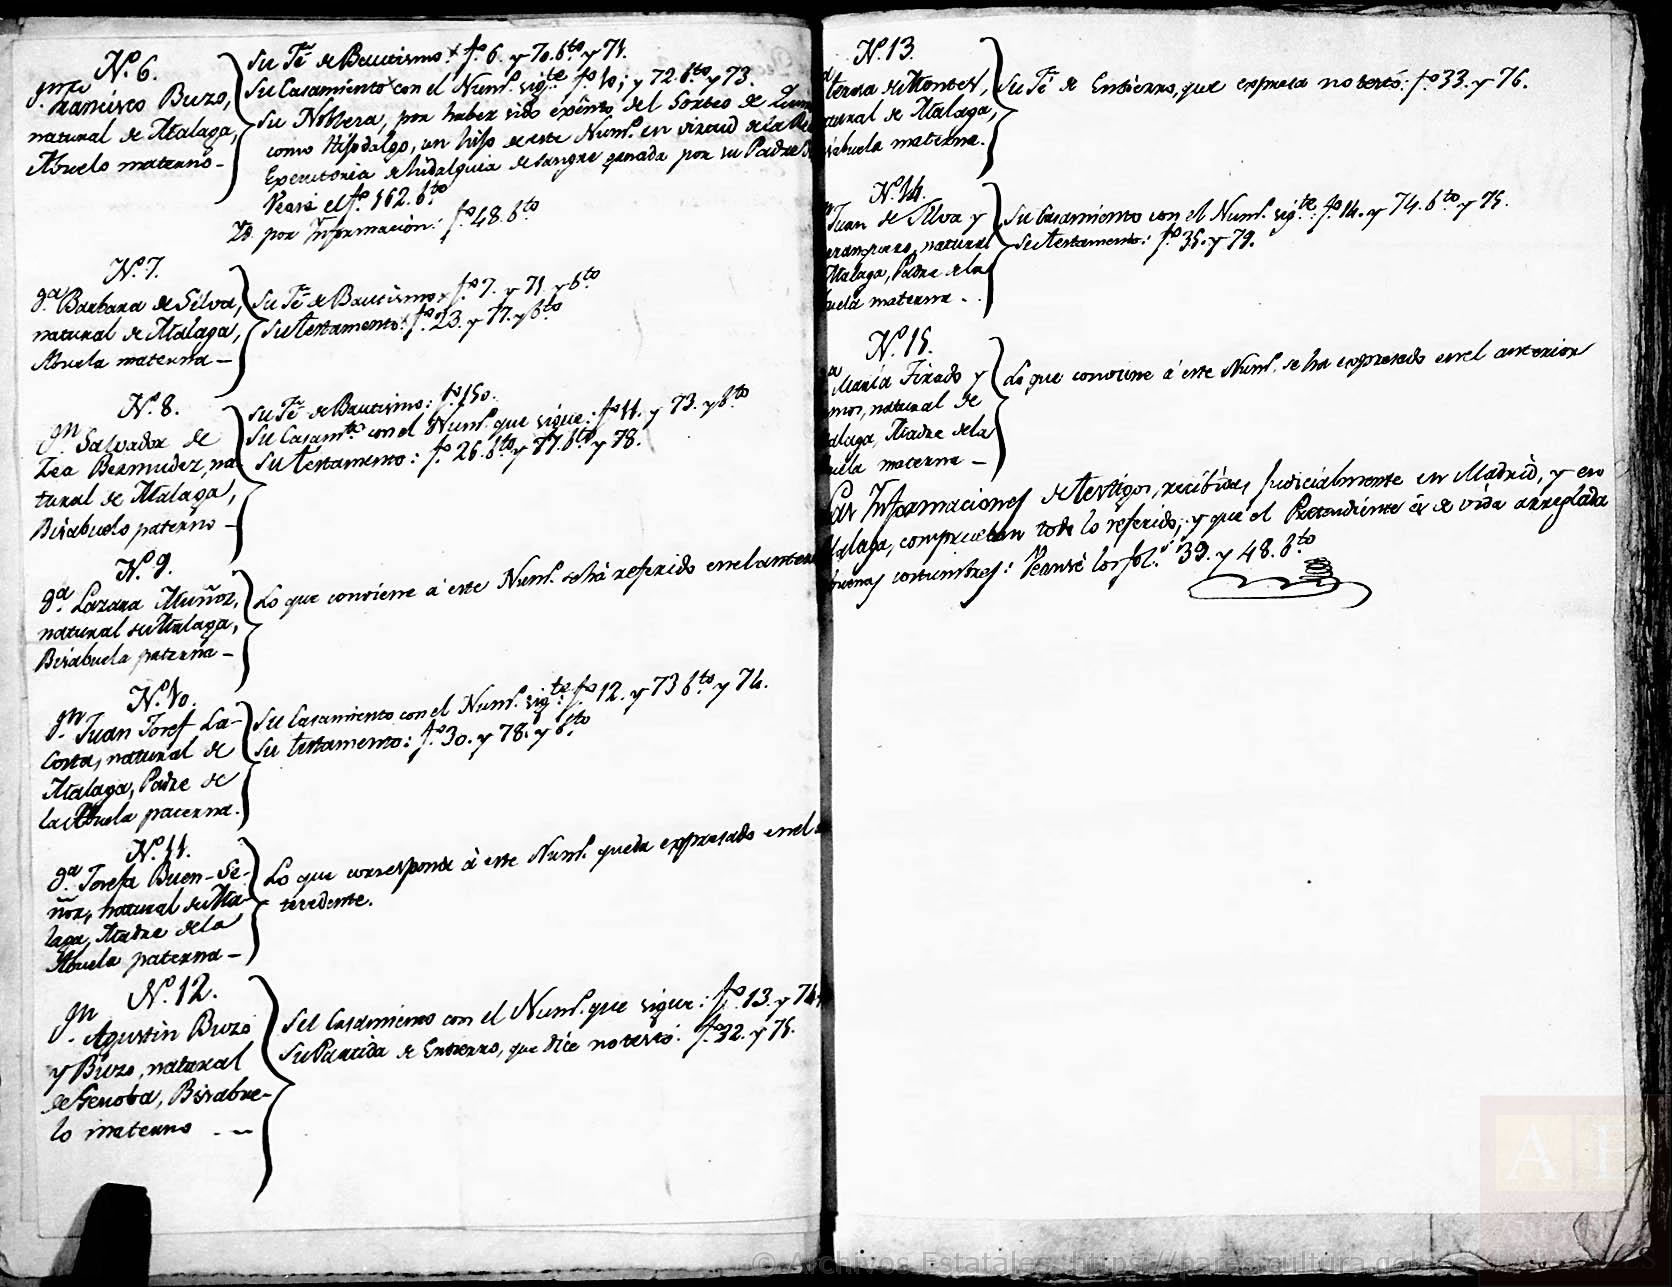 N.º 6.
D.n Francisco Buzo,
natural de Malaga,
Abuelo materno -
Su Fé de Bautismo: f.º 6. y 70. b.to y 71.
Su Casamiento con el Num.º sig.te f.º 10; y 72. b.to y 73.
Su Nobleza, por haber sido exênto del Sorteo de
como Hijodalgo, un hijo de este Num.º en virtud de la
Executoria de hidalguia de sangre ganada por su Padre
Vease el f.º 162. b.to
Yd. por Informacion: f.º 48. b.to
N.º 7.
D.ª Barbara de Silva,
natural de Malaga,
Abuela materna -
Su Fé de Bautismo: f.º 7. y 71. y b.to
Su testamento: f.º 23. y 77. y b.to
N.º 8.
D.n Salvador de
Zea Bermudez, na-
tural de Malaga,
Bisabuelo paterno -
Su Fé de Bautismo: f.º 150.
Su Casam.to con el Num.º que sigue: f.º 11. y 73. y b.to
Su testamento: f.º 26. b.to y 77. b.to y 78.
N.º 9.
D.ª Lazara Muñoz,
natural de Malaga,
Bisabuela paterna -
Lo que conviene á este Num.º se ha referido en el anter
N.º 10.
D.n Juan Josef La-
Costa, natural de
Malaga, Padre de
la Abuela paterna.
Su Casamiento con el Num.º sig.te: f.º 12. y 73 b.to y 74.
Su testamento: f.º 30. y 78. y b.to
N.º 11.
D.ª Josefa Buen-Se-
ñor, natural de Ma-
laga, Madre de la
Abuela paterna -
Lo que corresponde á este Num.º queda expresado en el
tecedente.
N.º 12.
D.n Agustin Buzo
y Buzo, natural
de Genoba, Bisabue-
lo materno - -
Su Casamiento con el Num.º que sigue: f.º 13. y 74.
Su Partida de Entierro, que dice no testó: f.º 32. y 75.
N.º 13.
teresa de Montes,
natural de Malaga,
isabuela materna.
Su Fé de Entierro, que expresa no testó: f.º 33. y 76.
N.º 14.
Juan de Silva y
natural
Malaga, Padre de la
buela materna -
Su Casamiento con el Num.º sig.te: f.º 14. y 74. b.to y 75.
Su testamento: f.º 35. y 79.
N.º 15.
Maria Tirado y
mos, natural de
alaga, Madre de la
uela materna -
Lo que conviene á este Num.º se ha expresado en el anterior
Por Informaciones de testigos, recibidas judicialmente en Madrid, y en
Malaga, comprueban todo lo referido; y que el Pretendiente es de vida arreglada
buenas costumbres: Veanse los fol.s 39. y 48. b.to
© Archivos Estatales, https://pares.cultura.gob